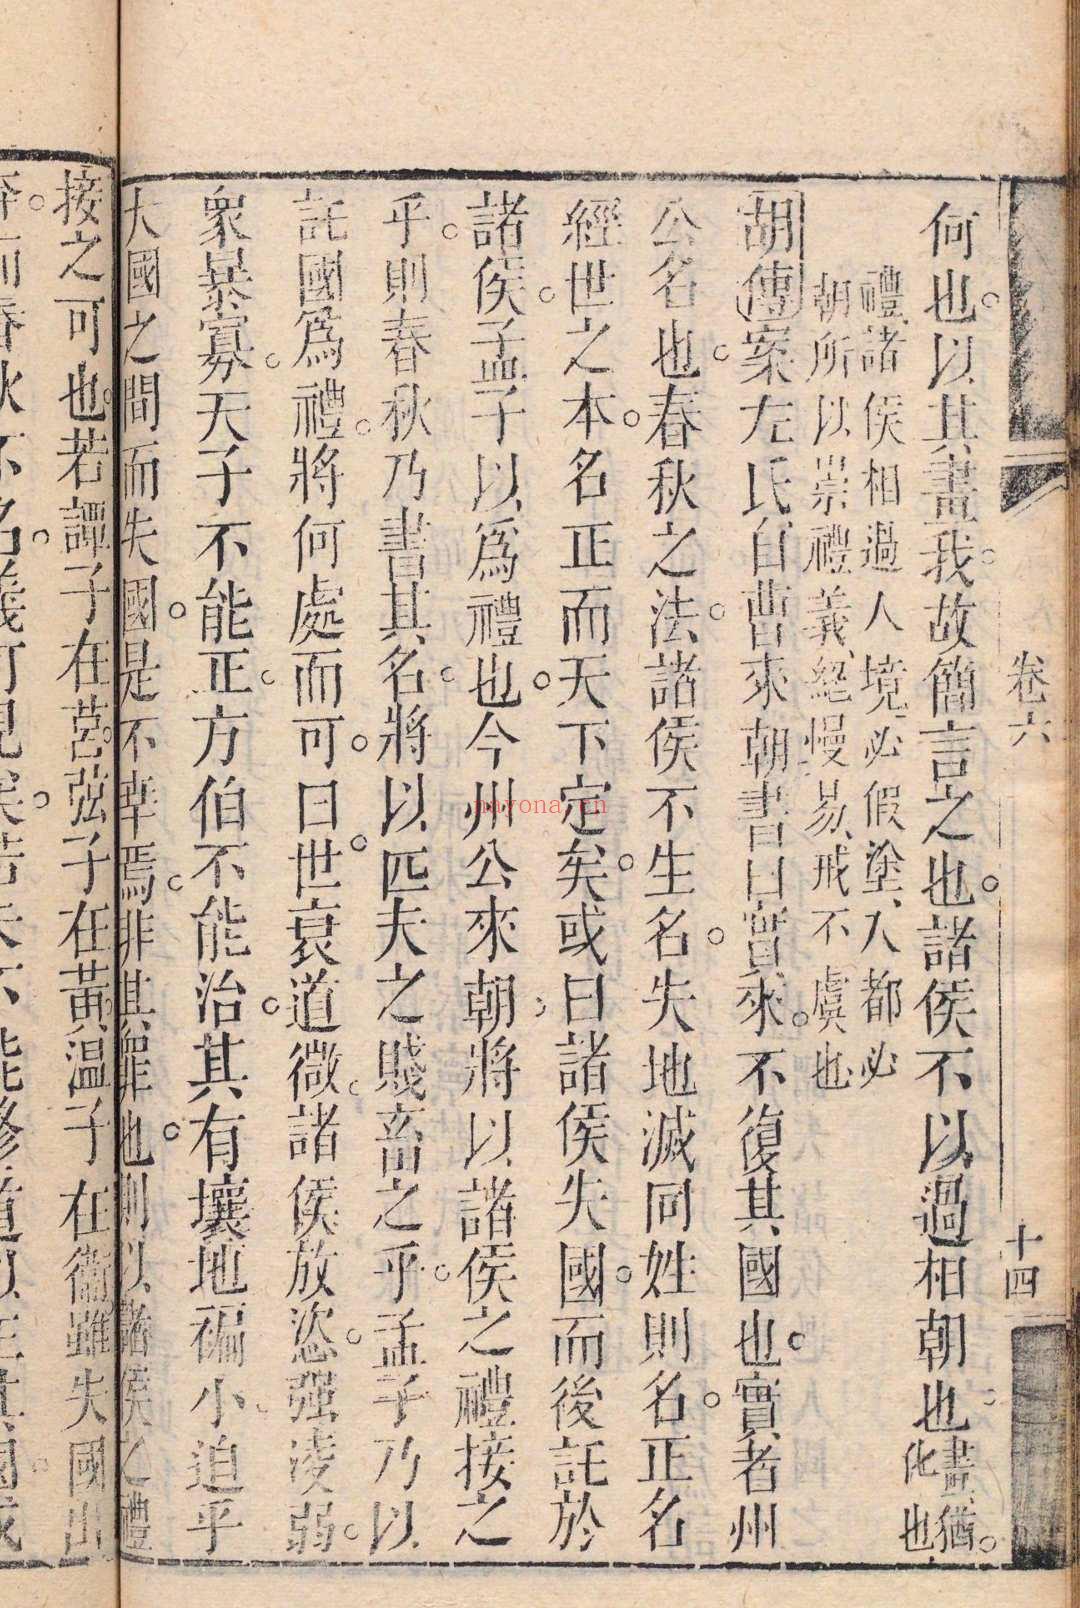 卷六
十四
何也以其畫我故簡言之也諸侯不以過相朝也畫猶
化也
禮諸侯相過入境必假塗入都必
朝所以崇禮義絕慢易戒不虞也
胡傳案左氏自曹來朝書曰寔來不復其國也實者州
公名也春秋之法諸侯不生名失地滅同姓則名正名
經世之本名正而天下定矣或曰諸侯失國而後託於
諸侯孟子以為禮也今州公來朝將以諸侯之禮接之
乎則春秋乃書其名將以匹夫之賤畜之乎孟子乃以
託國為禮將何處而可曰世衰道微諸侯放恣强淩弱
衆暴寡天子不能正方伯不能治其有壤地褊小迫乎
大國之間而失國是不幸焉非其罪也則以諸侯之禮
接之可也若譚子在莒弦子在黃温子在衞雖失國出
奔而春秋不名義可見矣若夫不能修道以正其國或
nayona.cn